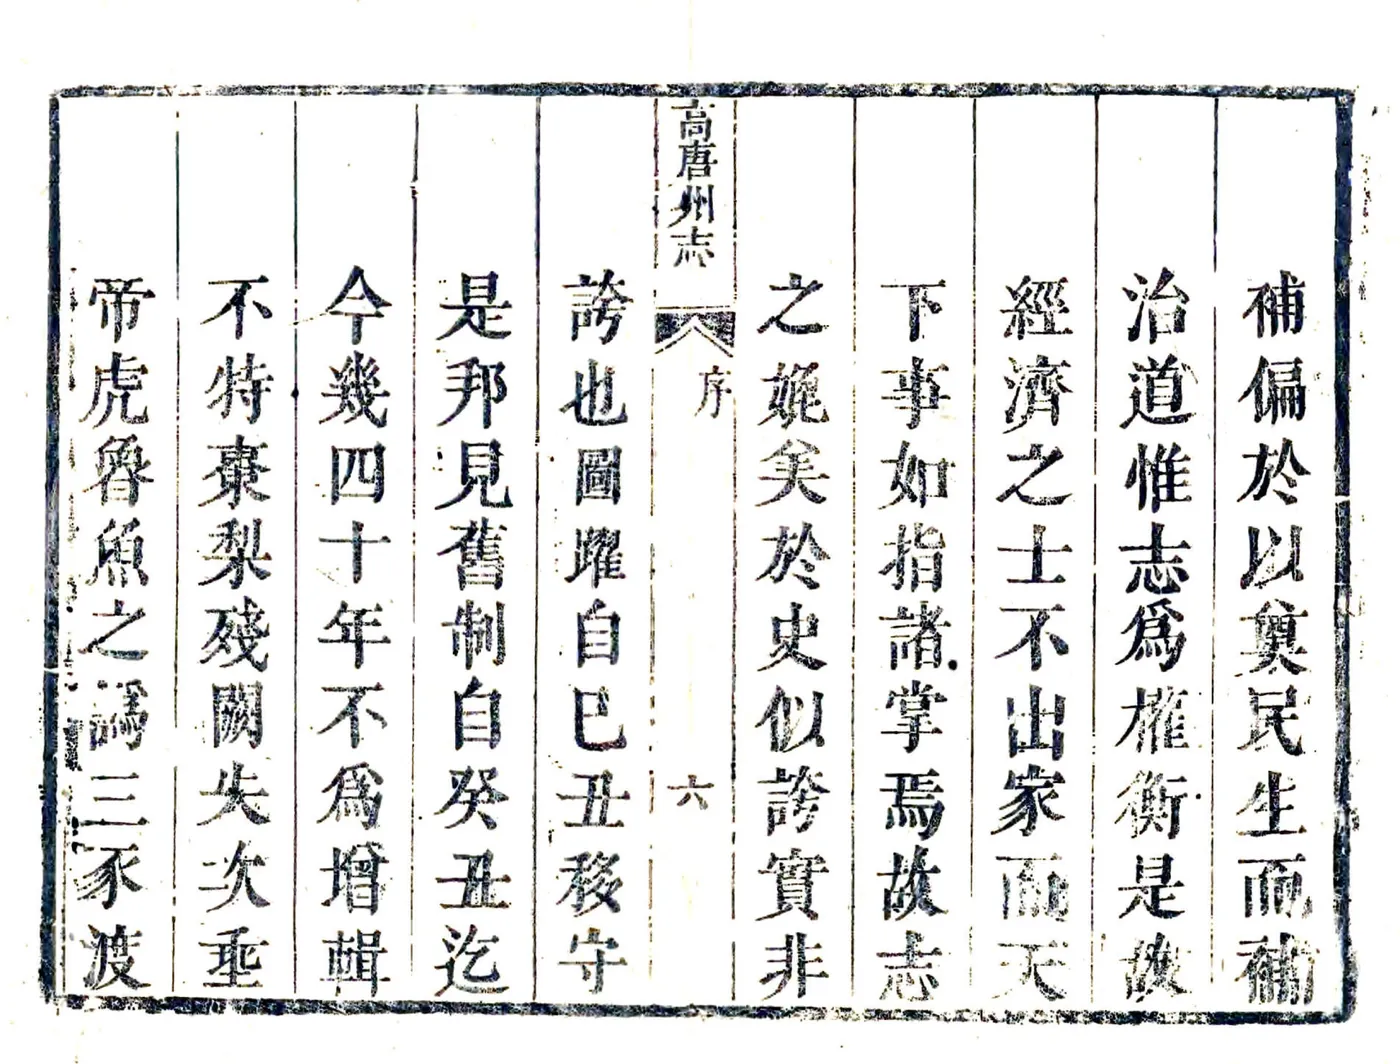 補偏於以奠民生而補
治道惟志為權衡是故
經濟之士不出家而天
下事如指諸掌焉故志
之娓矣於史似誇實非
高唐州志
序
六
誇也圖躍自巳丑移守
是邦見舊制自癸丑迄
今幾四十年不為增輯
不特棗梨殘闕失次亟
帝虎魯魚之譌三豕渡